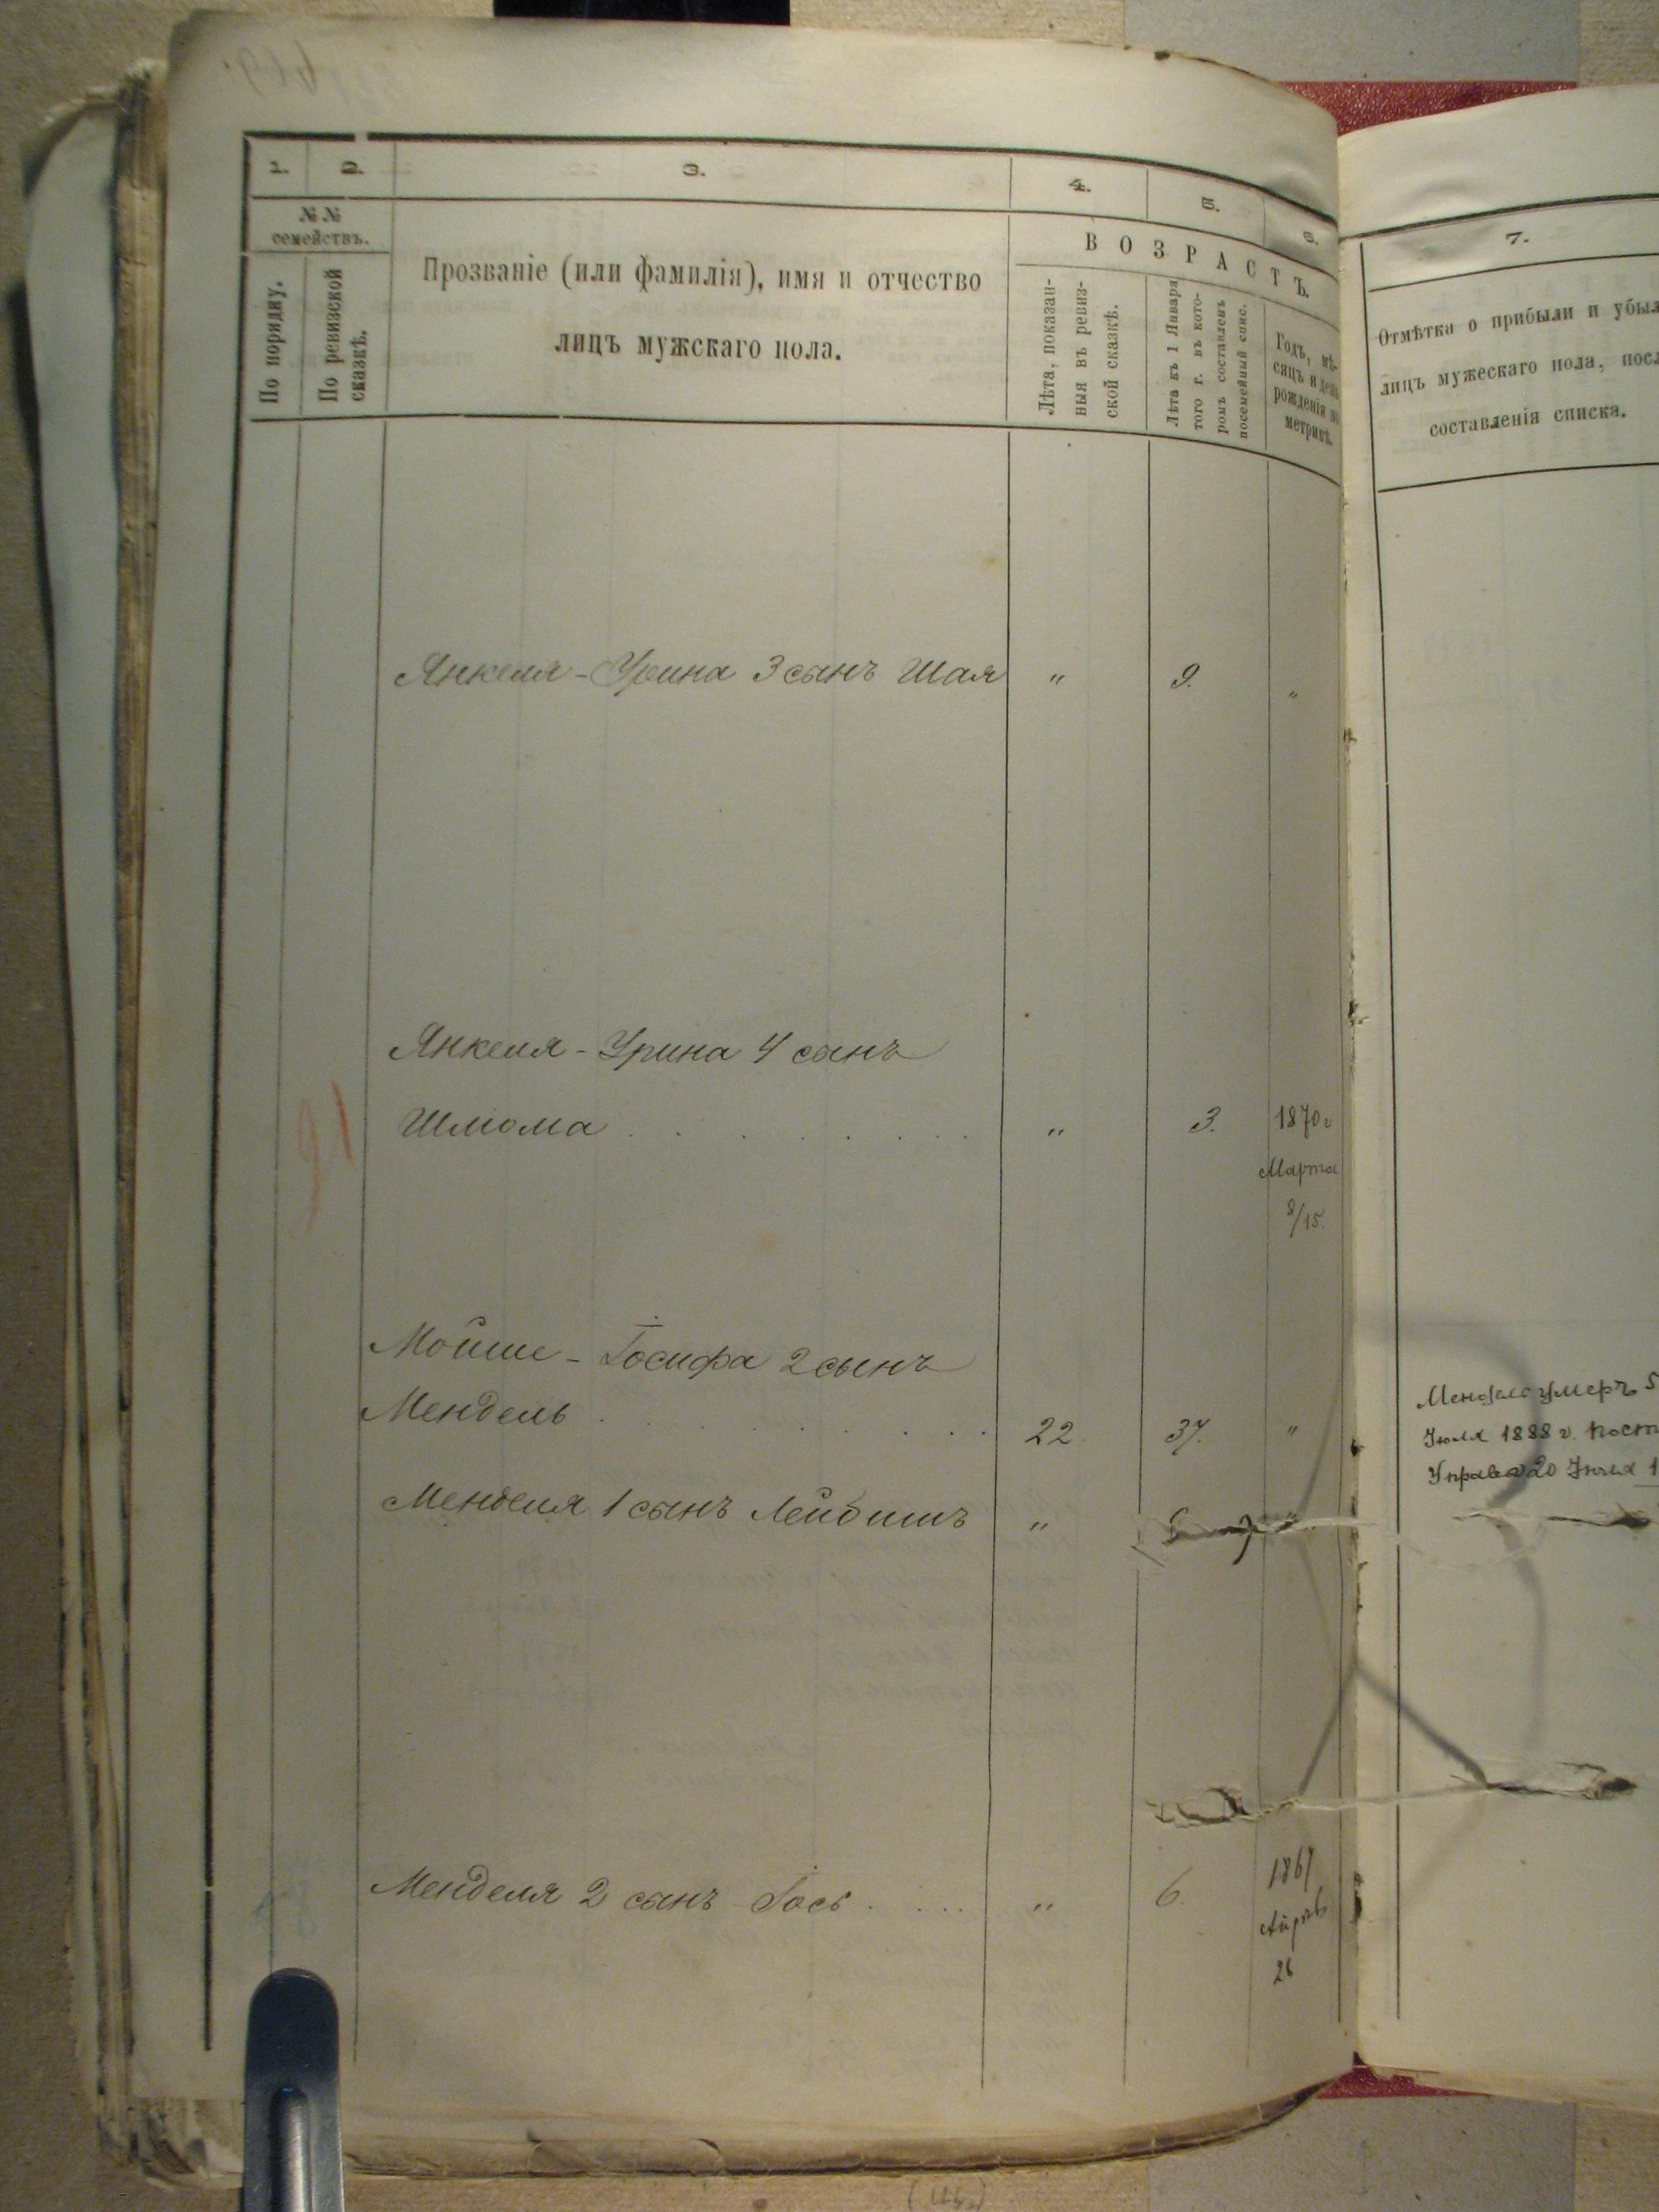 1. 2. 3. 4. 5. 6. 7.
№ №
семействъ.
По порядку.
По ревизской
сказкѣ.
Прозваніе (или фамилія), имя и отчество
лицъ мужскаго пола.
ВОЗРАСТЪ.
Лѣта, показан-
ныя въ ревиз-
ской сказкѣ.
Лѣта къ 1 Января
того г. въ кото-
ромъ составленъ
посемейный спис.
Годъ, мѣ-
сяцъ и день
рожденія по
метрикѣ.
Отмѣтка о прибыли и убыл
лицъ мужескаго пола, посл
составленія списка.
Янкеля - Урина 3 сынъ Шая " 9. "
Янкеля - Урина 4 сынъ
Шлиома " 3. 1870 г
Марта
8/15.
Мойше - Іосифа 2 сынъ
Мендель 22. 37. "
Менделя 1 сынъ Лейбишъ "
Мендель умеръ 5
Іюля 1888 г. пост
20 Іюля 1
Менделя 2 сынъ Іось " 6. 1867
26